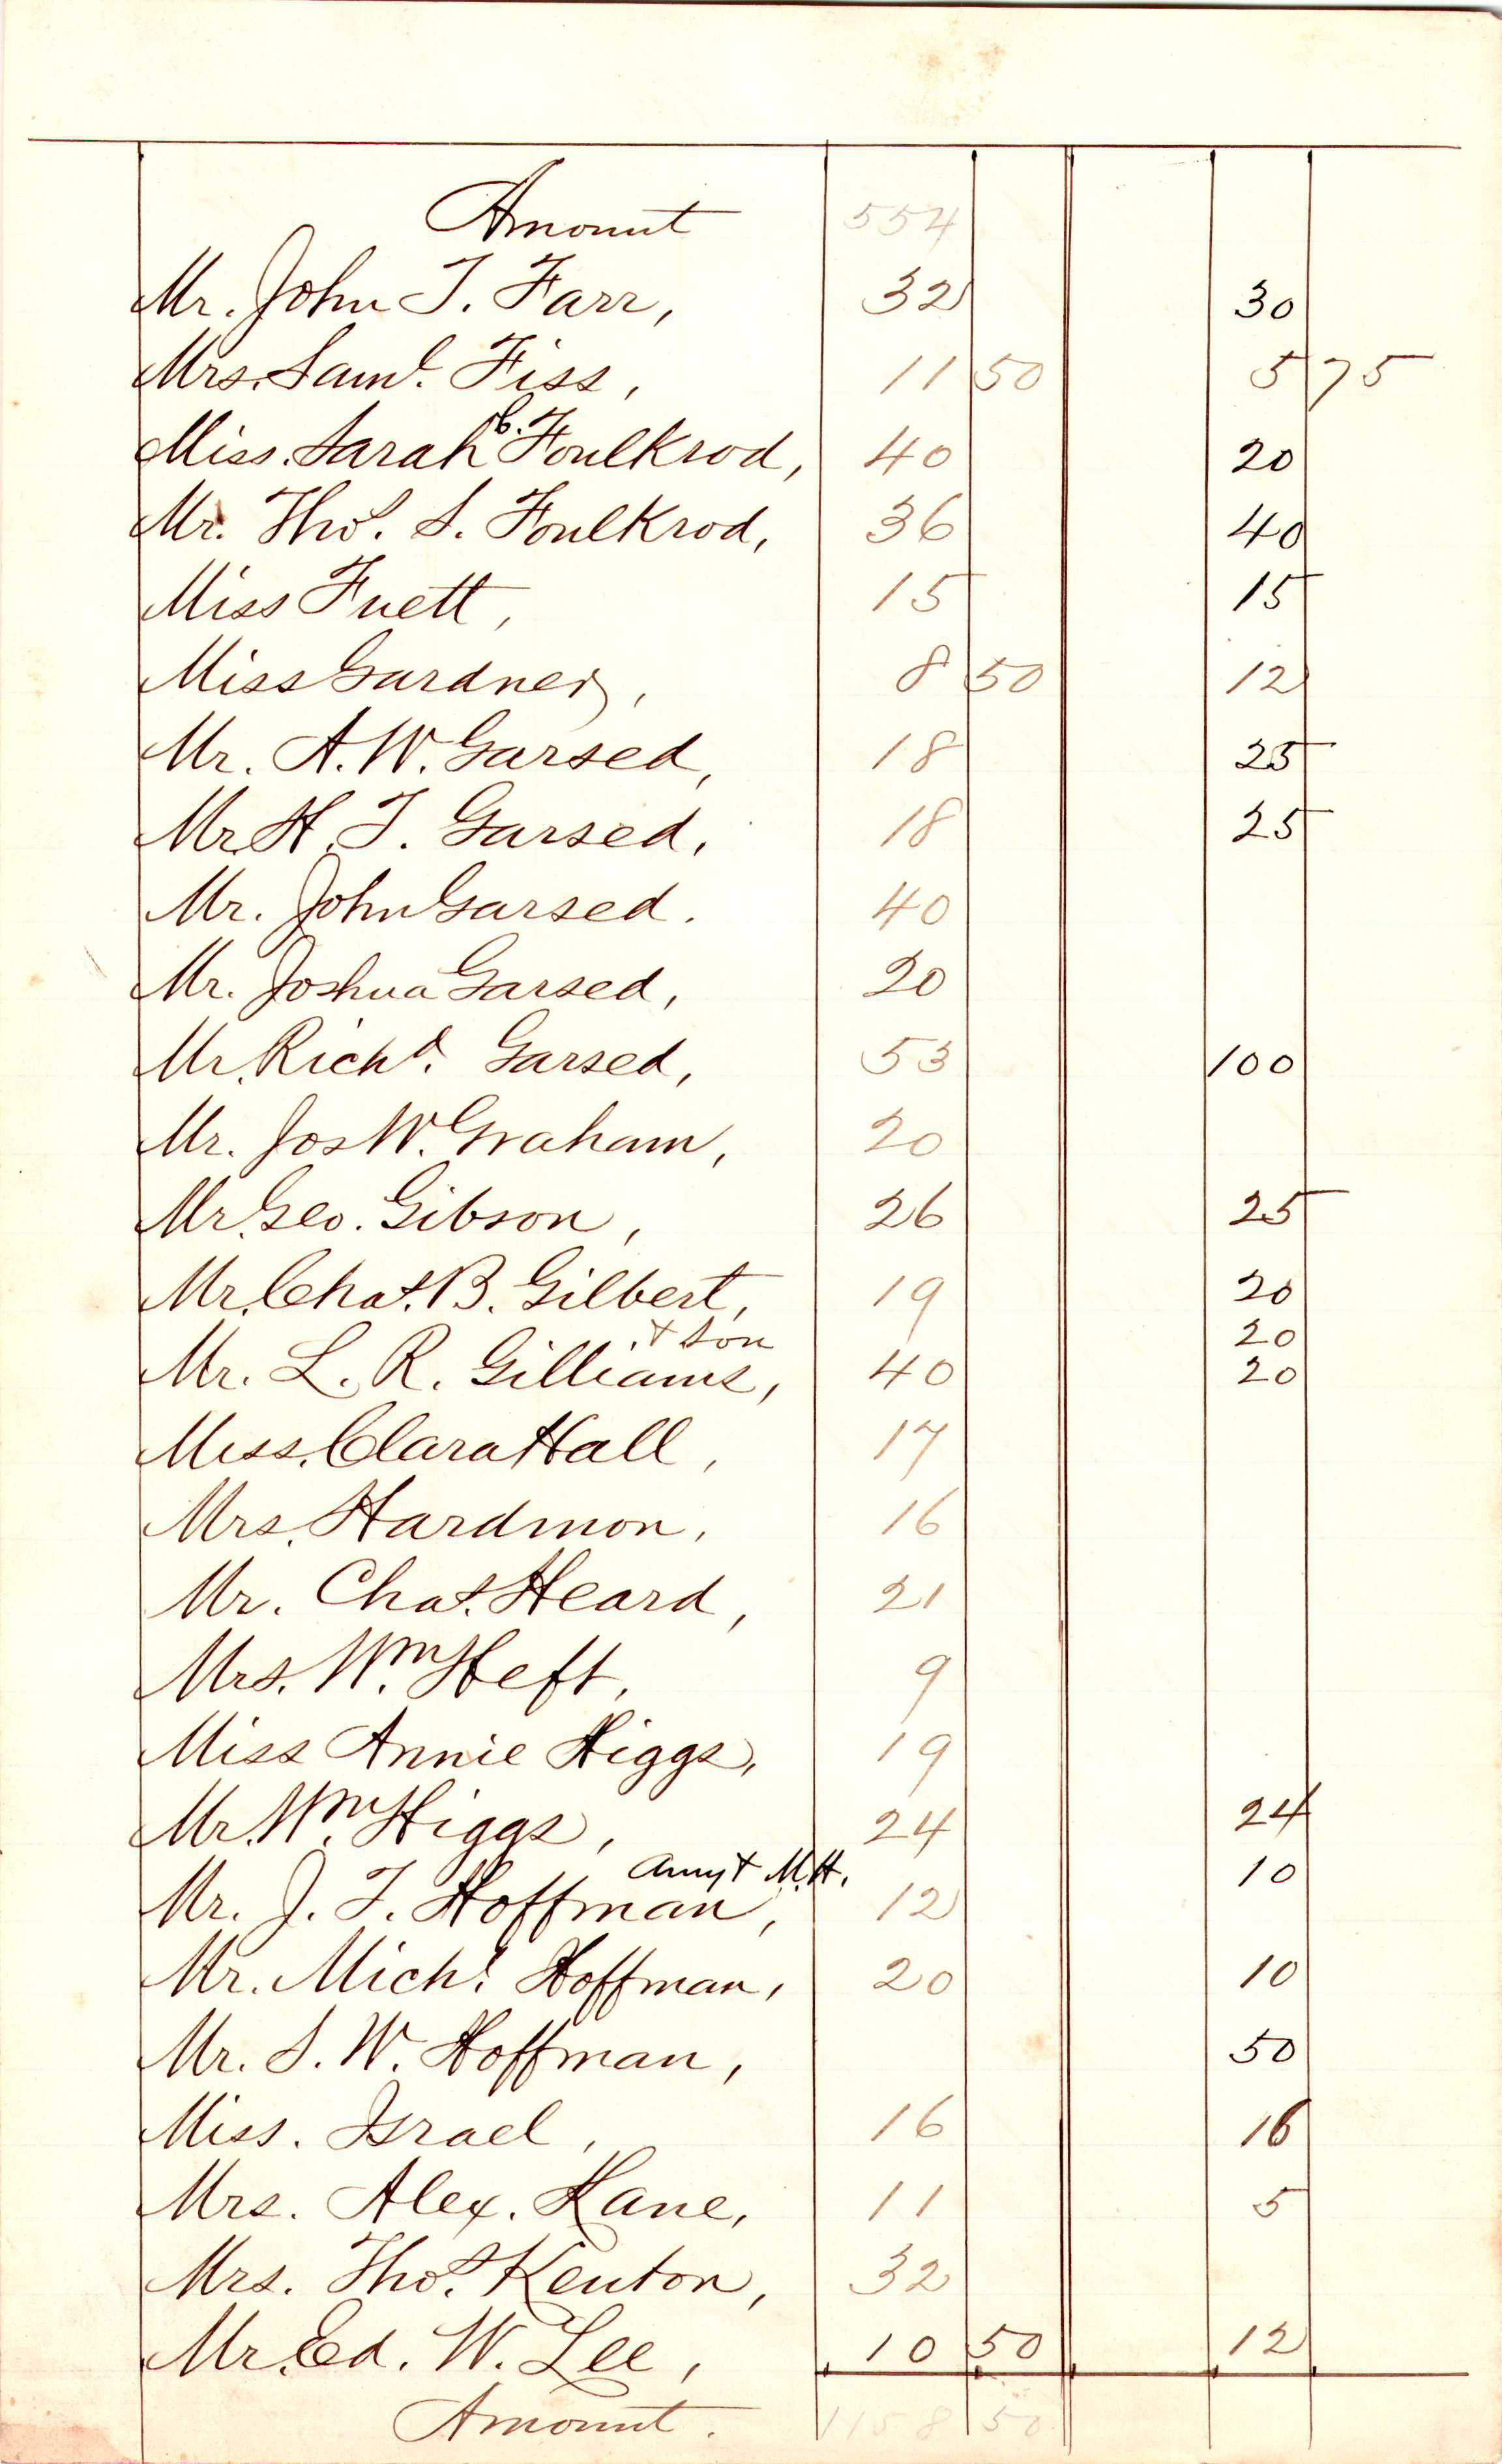 Amount 554
Mr. John T. Farr, 32 30
Mrs. Saml. Fiss, 11 50 5 75
Miss. Sarah C. Foulkrod, 40 20
Mr. Thos. S. Foulkrod, 36 40
Miss Fuett, 15 15
Miss Gardner, 8 50 12
Mr. A. W. Garsed, 18 25
Mr. H. T. Garsed, 18 25
Mr. John Garsed. 40
Mr. Joshua Garsed, 20
Mr. Richd. Garsed, 53 100
Mr. Jos W. Graham, 20
Mr. Geo. Gibson, 26 25
Mr. Chas. B. Gilbert, 19 20
+ Son 20
Mr. L. R. Gilliams, 40 20
Miss. Clara Hall, 17
Mrs. Hardmon, 16
Mr. Chas. Heard, 21
Mrs. Wm. Heft, 9
Miss Annie Higgs, 19
Mr. Wm. Higgs, 24 24
+ M.H. 10
Mr. J. T. Hoffman, 12
Mr. Michl. Hoffman, 20 10
Mr. S. W. Hoffman, 50
Miss. Israel, 16 16
Mrs. Alex. Kane, 11 5
Mrs. Thos. Kenton, 32
Mr. Ed. W. Lee, 10 50 12
Amount. 1158 50